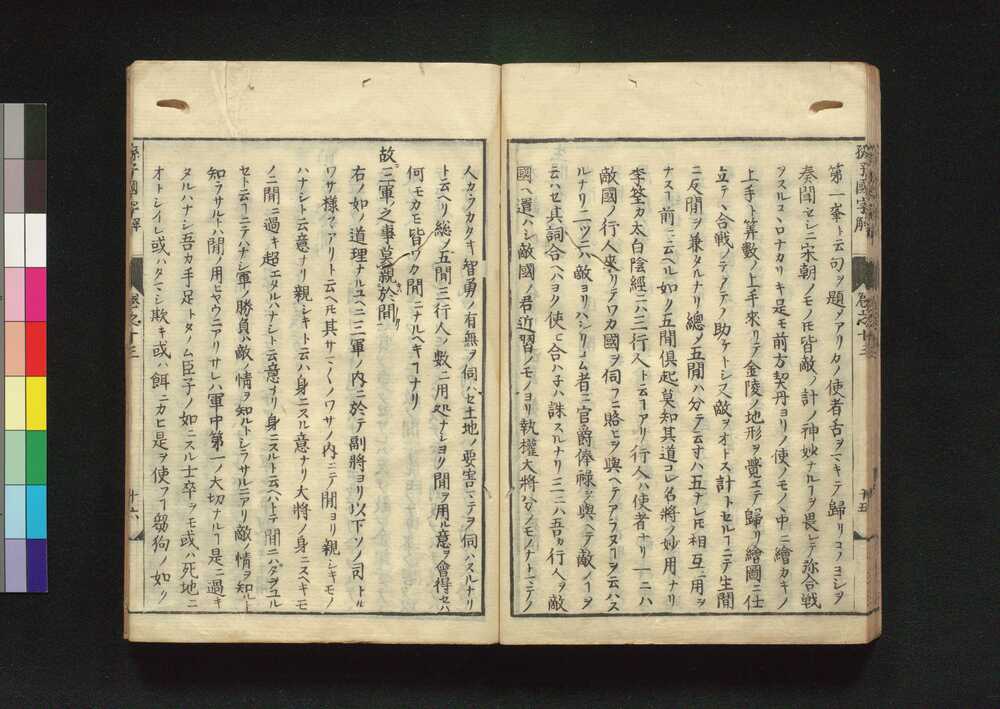 第一峯ト云句ヲ題メアリタノ使者舌ヲマキテ歸リコノヨシヲ
奏聞セシニ宋朝ノモノモ皆敵ノ計ノ神妙ナルヿヲ畏レテ弥合戰
ヲスルヿナカリキ是モ前方契丹ヨリノ使ノモノヽ中ニ繪カキノ
上手ト算數ノ上手來リテ金陵ノ地形ヲ覺エテ歸リ繪圖ニ仕
立テヽ合戰ノテアテノ助ケトシ又敵ヲオトス計トセルヿニテ生間
ニ反間ヲ兼タルナリ總メ五間ハ分テ云寸ハ五ナレ𪜈相互ニ用ヲ
ナスヿ前ニ云ヘル如ク五間俱起莫知其道コレ名將ノ妙用ナリ
李筌カ太白陰經ニハ三行人ト云ヿアリ行人ハ使者ナリ一ニハ
敵國ノ行人來リテワカ國ヲ伺フニ賂ヒヲ與ヘテアラヌヿヲ云ハス
ルナリ二ツニハ敵ヨリハシリ來ム者ニ官爵俸祿ヲ與ヘテ敵ノヿヲ
云ハセ其詞合ヘハヨク使ヒ合ハ子ハ誅スルナリ三ニハ吾カ行人ヲ敵
國ヘ遣ハシ敵國ノ君近習ノモノヨリ執權大將分ノモノナトマテノ
孫子國字解
卷之十三
人カラカタキ智勇ノ有無ヲ伺ハセ土地ノ要害マテヲ伺ハスルナリ
ト云ヘリ總ノ五間三行人ノ數ニ用処ナシヨク間ヲ用ル意ヲ會得セハ
何モカモ皆ワカ間ニナルヘキヿナリ
故三軍之事莫親於間
右ノ如ノ道理ナルユヘニ三軍ノ内ニ於テ副將ヨリ以下ソノ司〱トル
ワサ様〱アリト云ヘ𪜈其サマ〱ノワサノ内ニテ間ヨリ親シキモノ
ハナシト云意ナリ親シキト云ハ身ニスル意ナリ大將ノ身ニスヘキモ
ノニ間ニ過キ超エタルハナシト云意ナリ身ニスルト云ヘハトテ間ニハタヲユル
セト云ヿニテハナシ軍ノ勝負ハ敵ノ情ヲ知ルトシラサルニアリ敵ノ情ヲ知ルト
知ラサルトハ間ノ用ヒヤウニアリサレハ軍中第一ノ大切ナルヿ是ニ過キ
タルハナシ吾カ手足トタノム臣子ノ如ニスル士卒ヲモ或ハ死地ニ
オトシイレ或ハタマシ欺キ或ハ餌ニカヒ是ヲ使フヿ芻狗ノ如ク
孫子國字解
卷之十三
十六